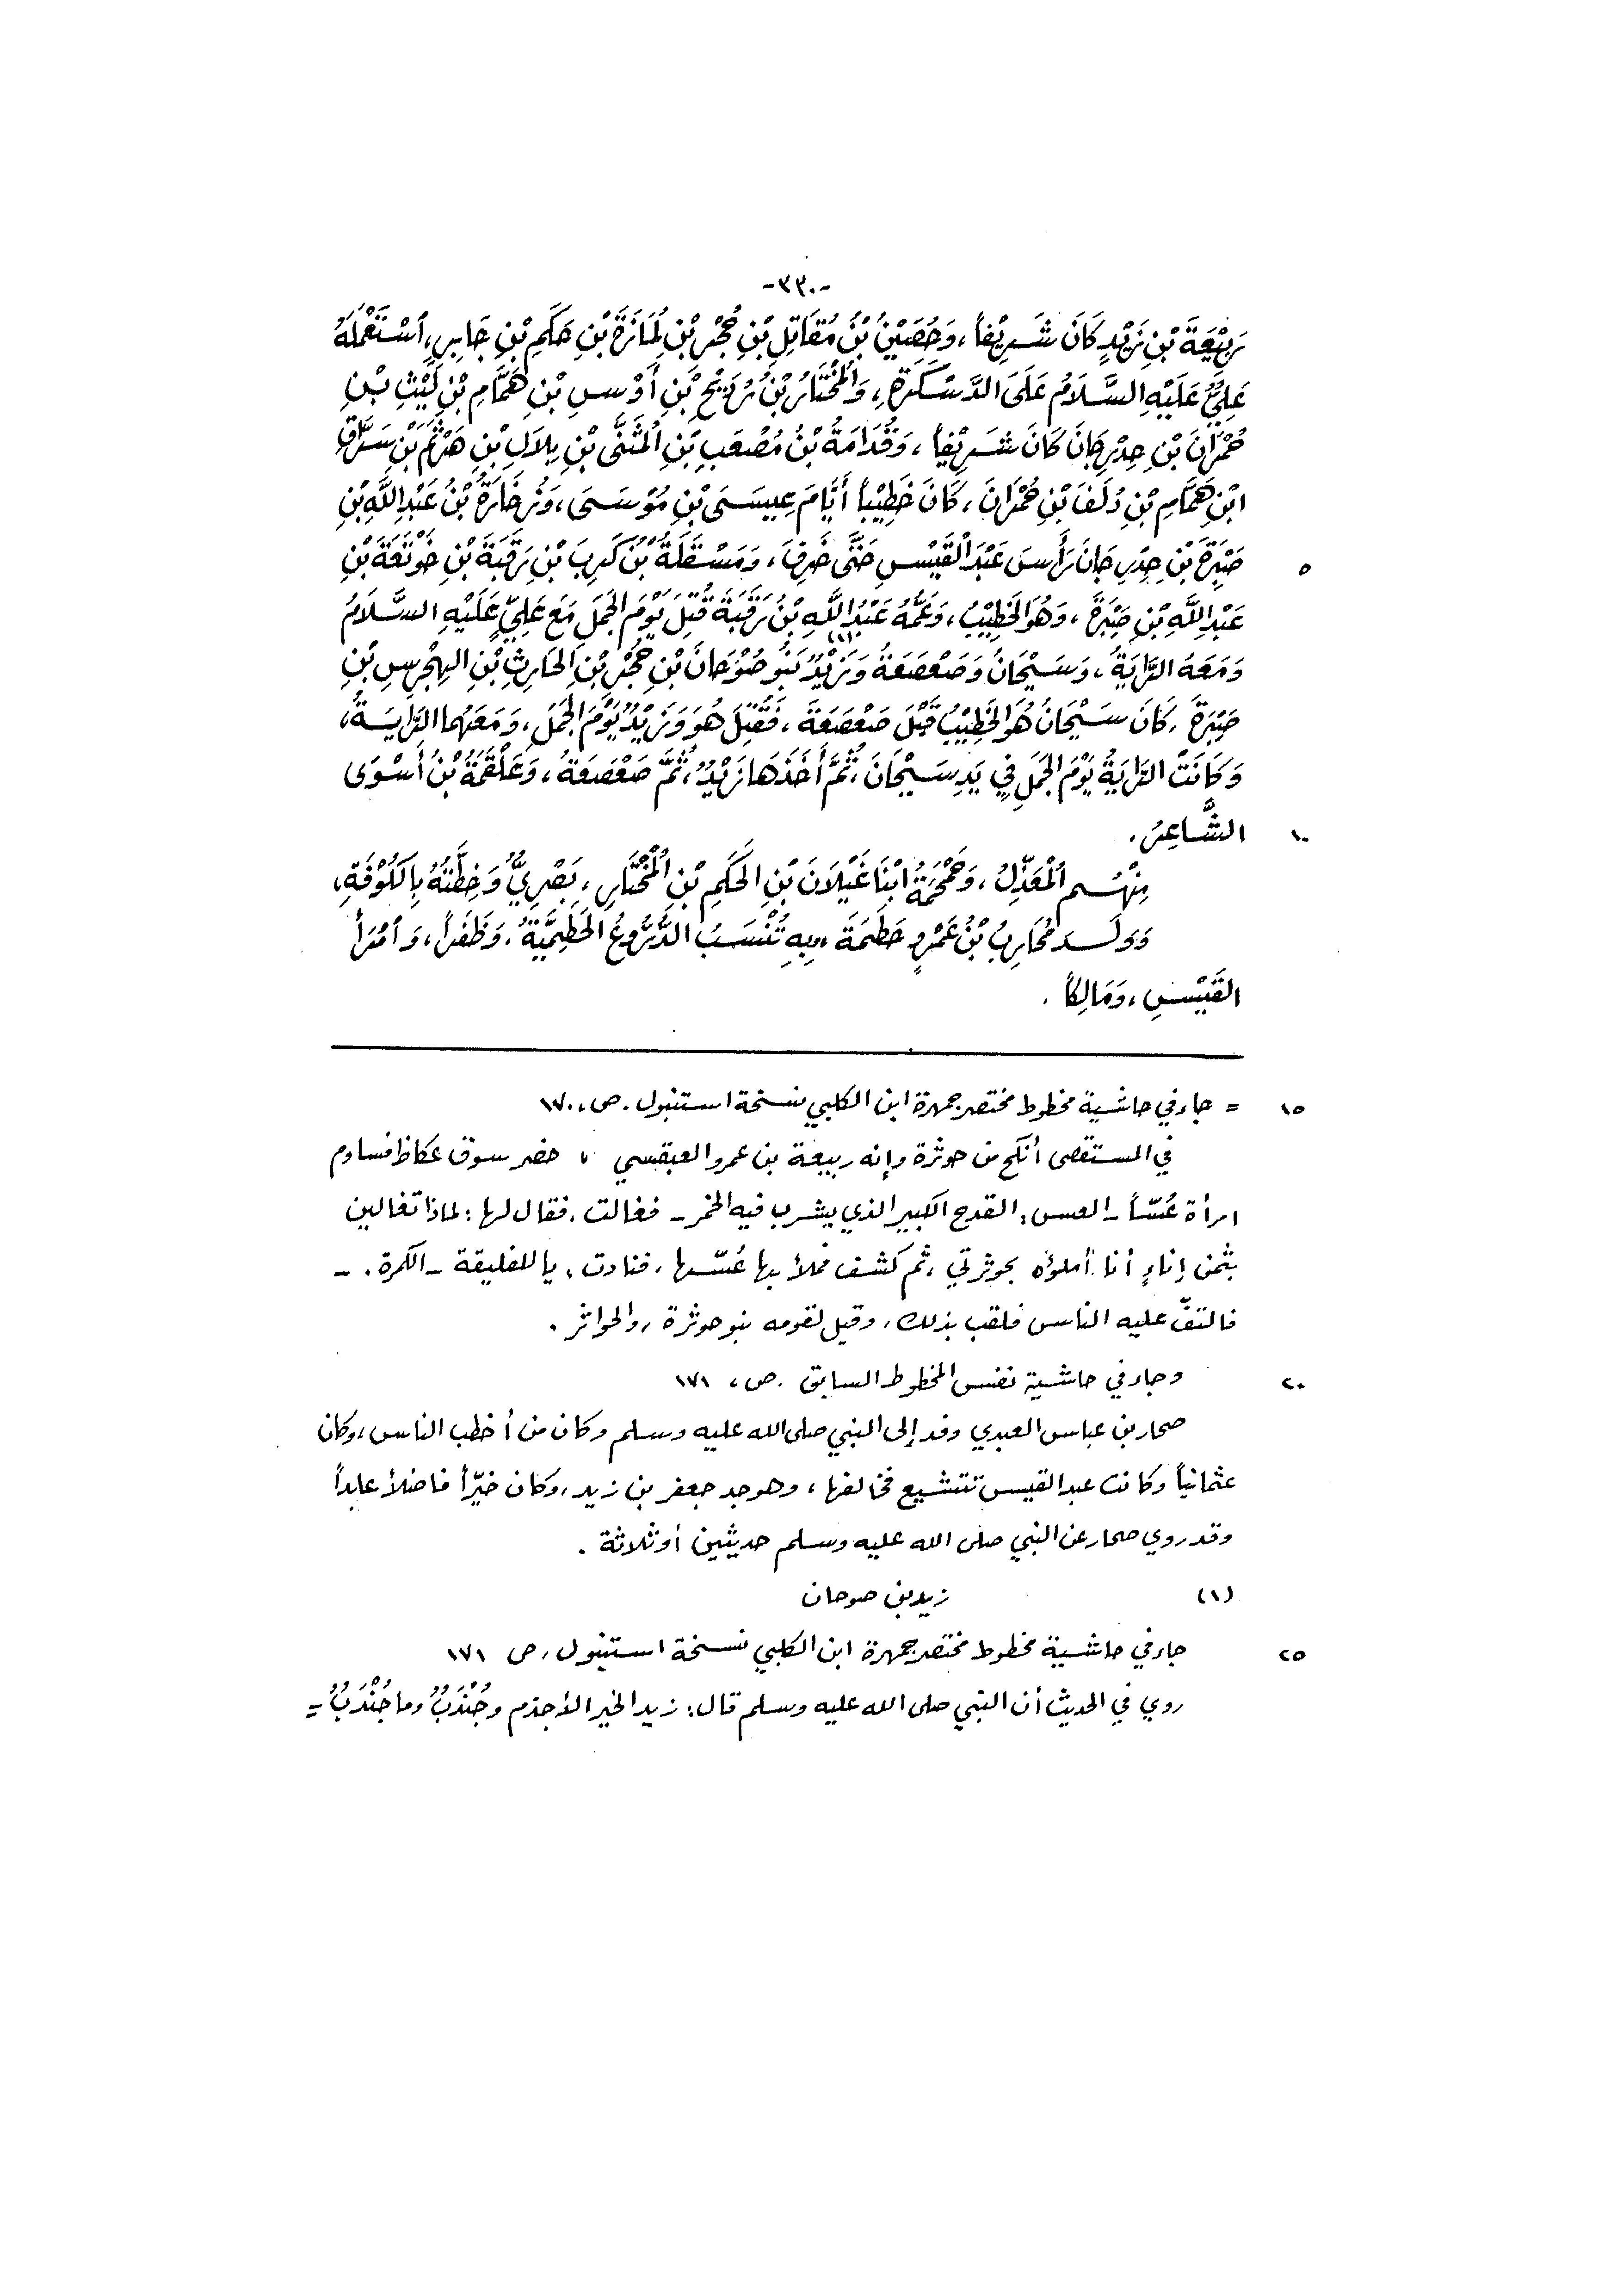 -٣٣٠-
رَبِيْعَةَ بْنِ زَيْدٍ كَانَ شَرِيْفاً، وَحُصَيْنُ بْنُ مُقَاتِلِ بْنِ حُجْرِ بْنِ لُمَازَةَ بْنِ حَكَمِ بْنِ جَابِرٍ، ٱسْتَعْمَلَهُ
عَلِيٌّ عَلَيْهِ السَّلَامُ عَلَى الدَّسْكَرَةِ، وَالْمُخْتَارُ بْنُ رُدَيْحِ بْنِ أَوْسِ بْنِ هَمَّامِ بْنِ لَيْثِ بْنِ
حُمْرَانَ بْنِ حِدْرِجَانَ كَانَ شَرِيْفاً، وَقُدَامَةُ بْنُ مُصْعَبِ بْنِ الْمُثَنَّى بْنِ بِلَالِ بْنِ هَرْثَمِ بْنِ سَرَّاقِ
ابْنِ هَمَّامِ بْنِ دُلَفَ بْنِ حُمْرَانَ، كَانَ خَطِيْباً أَيَّامَ عِيسَى بْنِ مُوْسَى، وَزُخَارَةُ بْنُ عَبْدِ اللَّهِ بْنِ
٥ صَبِرَةَ بْنِ حِدْرِجَانَ رَأَسَ عَبْدَ الْقَيْسِ حَتَّى خَرِفَ، وَمَسْقَلَةُ بْنُ كَرِبَ بْنِ رَقَبَةَ بْنِ خَوْتَعَةَ بْنِ
عَبْدِ اللَّهِ بْنِ صَبِرَةَ، وَهُوَ الْخَطِيْبُ، وَعَمُّهُ عَبْدُ اللَّهِ بْنُ رَقَبَةَ قُتِلَ يَوْمَ الْجَمَلِ مَعَ عَلِيٍّ عَلَيْهِ السَّلَامُ
وَمَعَهُ الرَّايَةُ، وَسَيْحَانُ وَصَعْصَعَةُ وَزَيْدٌ(١) بَنُو صُوْحَانَ بْنِ حُجْرِ بْنِ الْحَارِثِ بْنِ الهِجْرِسِ بْنِ
صَبِرَةَ، كَانَ سَيْحَانُ هُوَ الْخَطِيْبُ قَبْلَ صَعْصَعَةَ، فَقُتِلَ هُوَ وَزَيْدٌ يَوْمَ الْجَمَلِ، وَمَعَهُما الرَّايَةُ،
وَكَانَتِ الرَّايَةُ يَوْمَ الْجَمَلِ فِي يَدِ سَيْحَانَ، ثُمَّ أَخَذَهَا زَيْدٌ، ثُمَّ صَعْصَعَةُ، وَعَلْقَمَةُ بْنُ أَسْوَى
١٠ الشَّاعِرُ.
مِنْهُم الْمُعَذَّلُ، وَحَمْحَمَةُ ابْنَا غَيْلَانَ بْنِ الْحَكَمِ بْنِ الْمُخْتَارِ، بَصْرِيٌّ وَخِطَّتُهُ بِالكُوْفَةِ،
وَوَلَدَ مُحَارِبُ بْنُ عَمْرٍو حَطَمَةَ، بِهِ تُنْسَبُ الدُّرُوعُ الْحَطَمِيَّةُ. وَظَفَراً، وَٱمْرَأَ
القَيْسِ، وَمَالِكاً.
١٥ = جاء في حاشية مخطوط مختصر جمهرة ابن الكلبي نسخة استنبول. ص، ١٧٠
في المستقصى أنكح من حوثرة وإنه ربيعة بن عمرو العبقسي، حضر سوق عكاظ فساوم
امرأة عُسّاً - العس: القدح الكبير الذي يشرب فيه الخمر - فغالت، فقال لها: لماذا تغالين
بثمن إناءٍ أنا أملؤه بحوثرتي، ثم كشف فملأ بها عُسّها، فنادت، يا للفليقة - الكمرة. -
فالتفّ عليه الناس فلقب بذلك، وقيل لقومه بنو حوثرة، والحواثر.
٢٠ وجاء في حاشية نفس المخطوط السابق. ص، ١٧١
صحار بن عباس العبدي وفد إلى النبي صلى الله عليه وسلم وكان من أخطب الناس، وكان
عثمانياً وكانت عبد القيس تتشيع فخالفها، وهو جد جعفر بن زيد، وكان خيّراً فاضلاً عابداً
وقد روي صحار عن النبي صلى الله عليه وسلم حديثين أو ثلاثة.
(١) زيد بن صوحان
٢٥ جاء في حاشية مخطوط مختصر جمهرة ابن الكلبي نسخة استنبول، ص ١٧١
روي في الحديث أن النبي صلى الله عليه وسلم قال: زيد الخير الأجذم وجُنْدَبٌ وما جُنْدَبٌ =